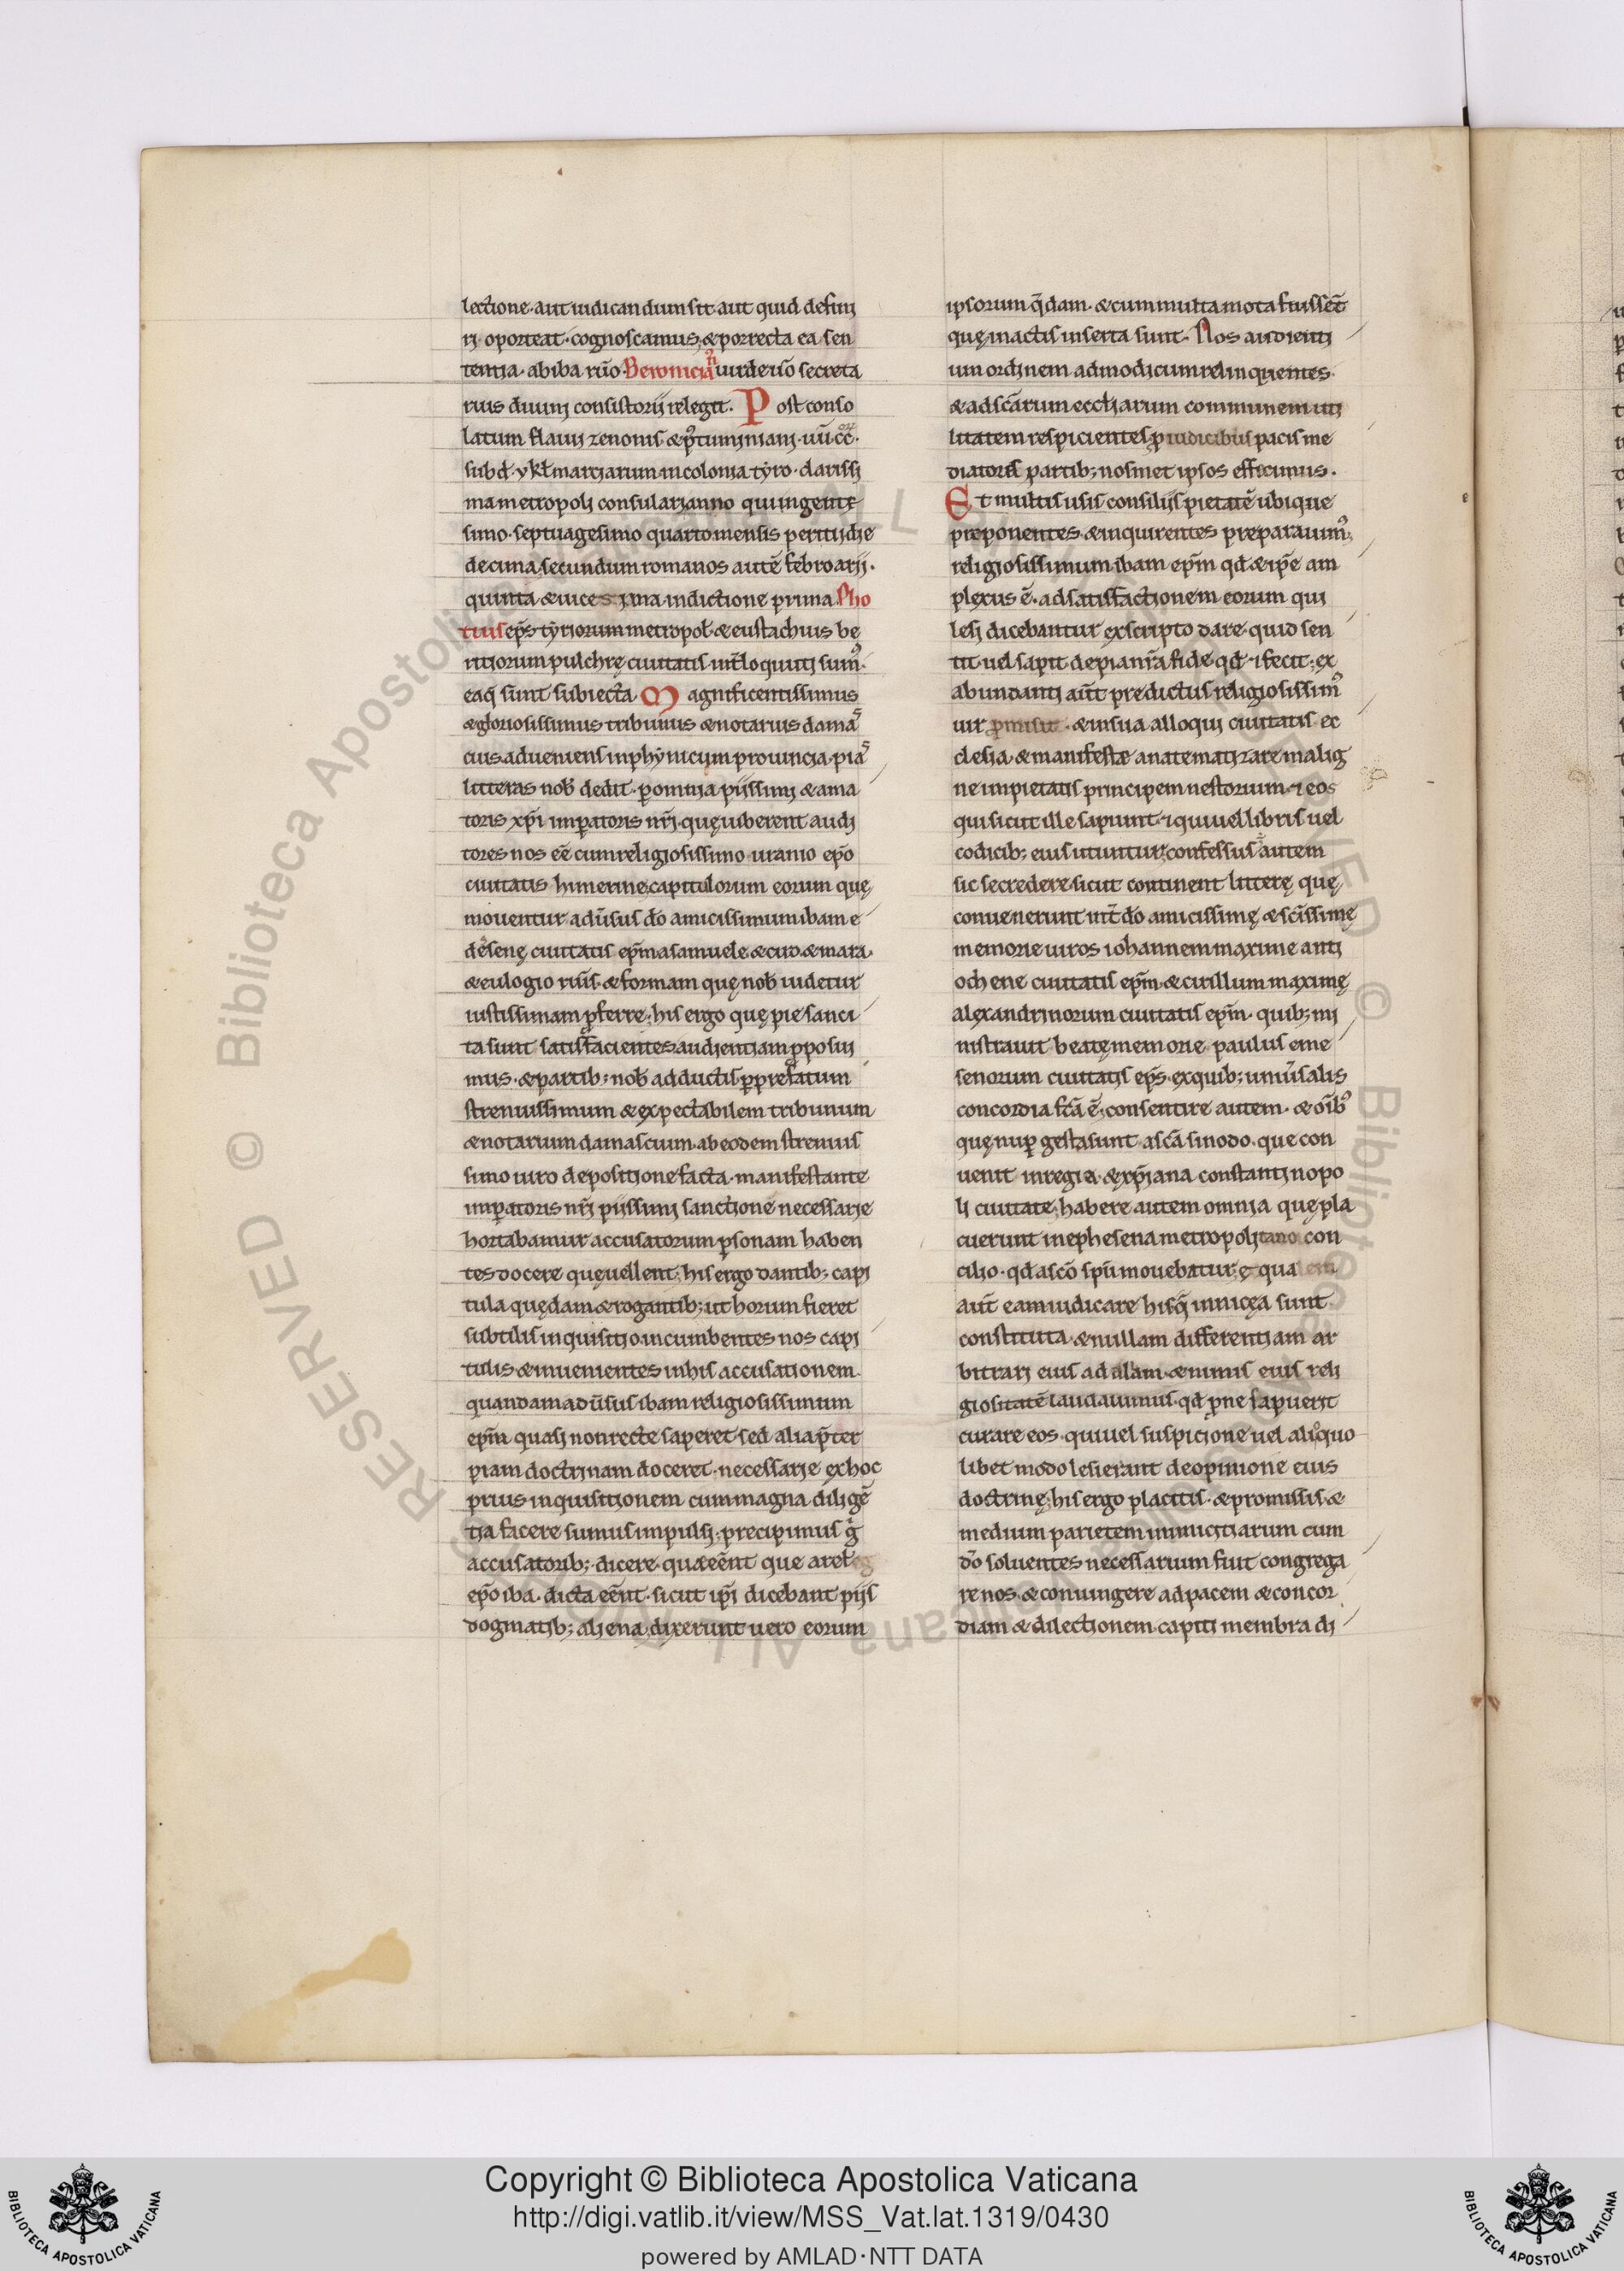 lectione· aut iudicandum sit aut quid defini
ri oporteat· cognoscamus, & porrecta ea sen
tentia· abiba rūo Beronicia uir deuō secreta
rius diuini consistorii relegit. Post conso
latum flauii zenonis & p̄tuminiani· uū cc̄·
sub d̄· y kl̄ marciarum in colonia tyro· clarissi
ma metropoli consulari anno quingente
simo· septuagesimo quarto mensis peritii die
decima, secundum romanos autē febroarii·
quinta & uicesima indictione prima. Pho
tius ep̄s tyriorum metropol̄· & eustachius be
ritiorum pulchrę ciuitatis int̄loquuti sum᷒·
eaq̄ sunt subiecta Magnificentissimus
& gloriosissimus tribunus & notarius damas
cus adueniens in phynicum prouincia· pias
litteras nob̄ dedit· p omnia piissimi & ama
toris xp̄i imp̄atoris nr̄i· quę uiberent audi
tores nos eē cum religiosissimo uranio ep̄o
ciuitatis himerine, capitulorum eorum quę
mouentur adūsus dō amicissimum ibam e
desenę ciuitatis ep̄m a samuele & cuo & mara·
& eulogio rūis· & formam quę nob̄ uidetur
iustissimam p̄ferre; his ergo quę pie sanci
ta sunt satisfacientes audientiam p̄posui
mus· & partib; nob̄ adductis p̱ prefatum
strenuissimum & expectabilem tribunum
& notarium damascum· ab eodem strenuis
simo uiro depositione facta· manifestante
imp̄atoris nr̄i piissimi sanctione necessarie
hortabamur accusatorum p̱sonam haben
tes docere quę uellent; his ergo dantib; capi
tula quędam & rogantib; ut horum fieret
subtilis inquisitio incumbentes nos capi
tulis & inuenientes in his accusationem
quandam adūsus ibam religiosissimum
ep̄m quasi non recte saperet sed alia p̄ter
piam doctrinam doceret· necessarie ex hoc
prius inquisitionem cum magna diligē
tia facere sumus impulsi; precipimus g̊
accusatorib; dicere quae eēnt que a rel̄eg
ep̄o iba· dicta eēnt· sicut ip̄i dicebant piis
dogmatib; aliena, dixerunt uero eorum
ipsorum q̄dam· & cum multa mota fuissēt
quę in actis inserta sunt· Nos audienti
um ordinem ad modicum relinquentes·
& ad sc̄arum eccl̄iarum communem uti
litatem respicientes, p̱ iudicibus pacis me
diatores partib; nosmet ipsos efficimus·
Et multis usis consiliis pietatē ubique
preponentes· & inquirentes preparauim᷒,
religiosissimum ibam ep̄m qd̄ & ip̄e am
plexus ē· ad satisfactionem eorum qui
lesi dicebantur ex scripto dare· quid sen
tit uel sapit de pia nr̄a fide qd̄ ⁊ fecit; ex
abundanti aut̄ predictus religiosissim᷒
uir promisit· & in sua alloqui ciuitatis ec
clesia· & manifeste anatematizare malig
ne impietatis principem nestorium· ⁊ eos
qui sicut ille sapiunt· ⁊ qui uel libris uel
codicib; eius utuntur, confessus autem
sic se credere sicut continent litterę quę
conuenerunt int̄ dō amicissimę & sc̄issimę
memorie uiros iohannem maxime anti
ochene ciuitatis ep̄m· & cirillum maximę
alexandrinorum ciuitatis ep̄m· quib; mi
nistrauit beatę memorie paulus eme
senorum ciuitatis ep̄s· ex quib; uniūsalis
concordia fc̄a ē; consentire autem· & oīb᷒
quę nup̱ gesta sunt a sc̄a sinodo· que con
uenit in regia· & xp̄iana constantinopo
li ciuitate; habere autem omnia quę pla
cuerunt in ephesena metropolitano con
cilio· qd̄ a sc̄o sp̄u mouebatur, ę qualem
aut̄ eam iudicare his q̄ in nicęa sunt
constituta· & nullam differentiam ar
bitrari eius ad aliam· & nimis eius reli
giositatē laudauimus· qd̄ p̱ne sapuerit
curare eos· qui uel suspicione uel alio quo
libet modo lesierant de opinione eius
doctrinę; his ergo placitis· & promissis· &
medium parietem inimicitiarum cum
dō soluentes necessarium fuit congrega
re nos· & coniungere ad pacem & concor
diam & dilectionem capiti membra di
Copyright © Biblioteca Apostolica Vaticana
http://digi.vatlib.it/view/MSS_Vat.lat.1319/0430
powered by AMLAD·NTT DATA